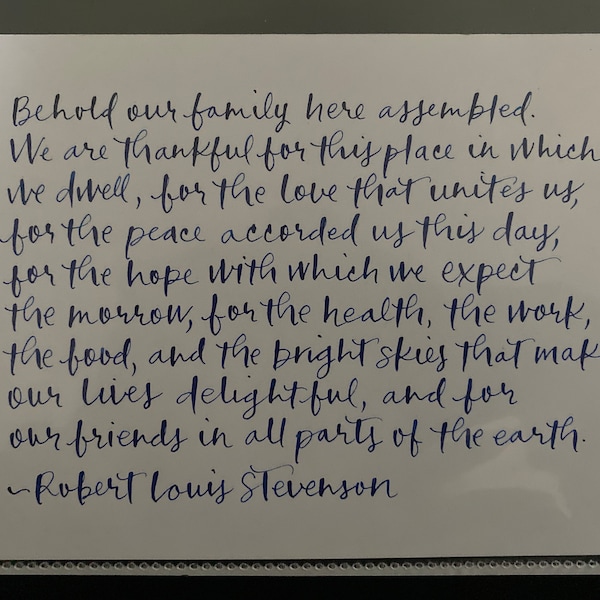 Behold our family here assembled.
We are thankful for this place in which
we dwell, for the love that unites us,
for the peace accorded us this day,
for the hope with which we expect
the morrow, for the health, the work,
the food, and the bright skies that mak
our lives delightful, and for
our friends in all parts of the earth.
~Robert Louis Stevenson